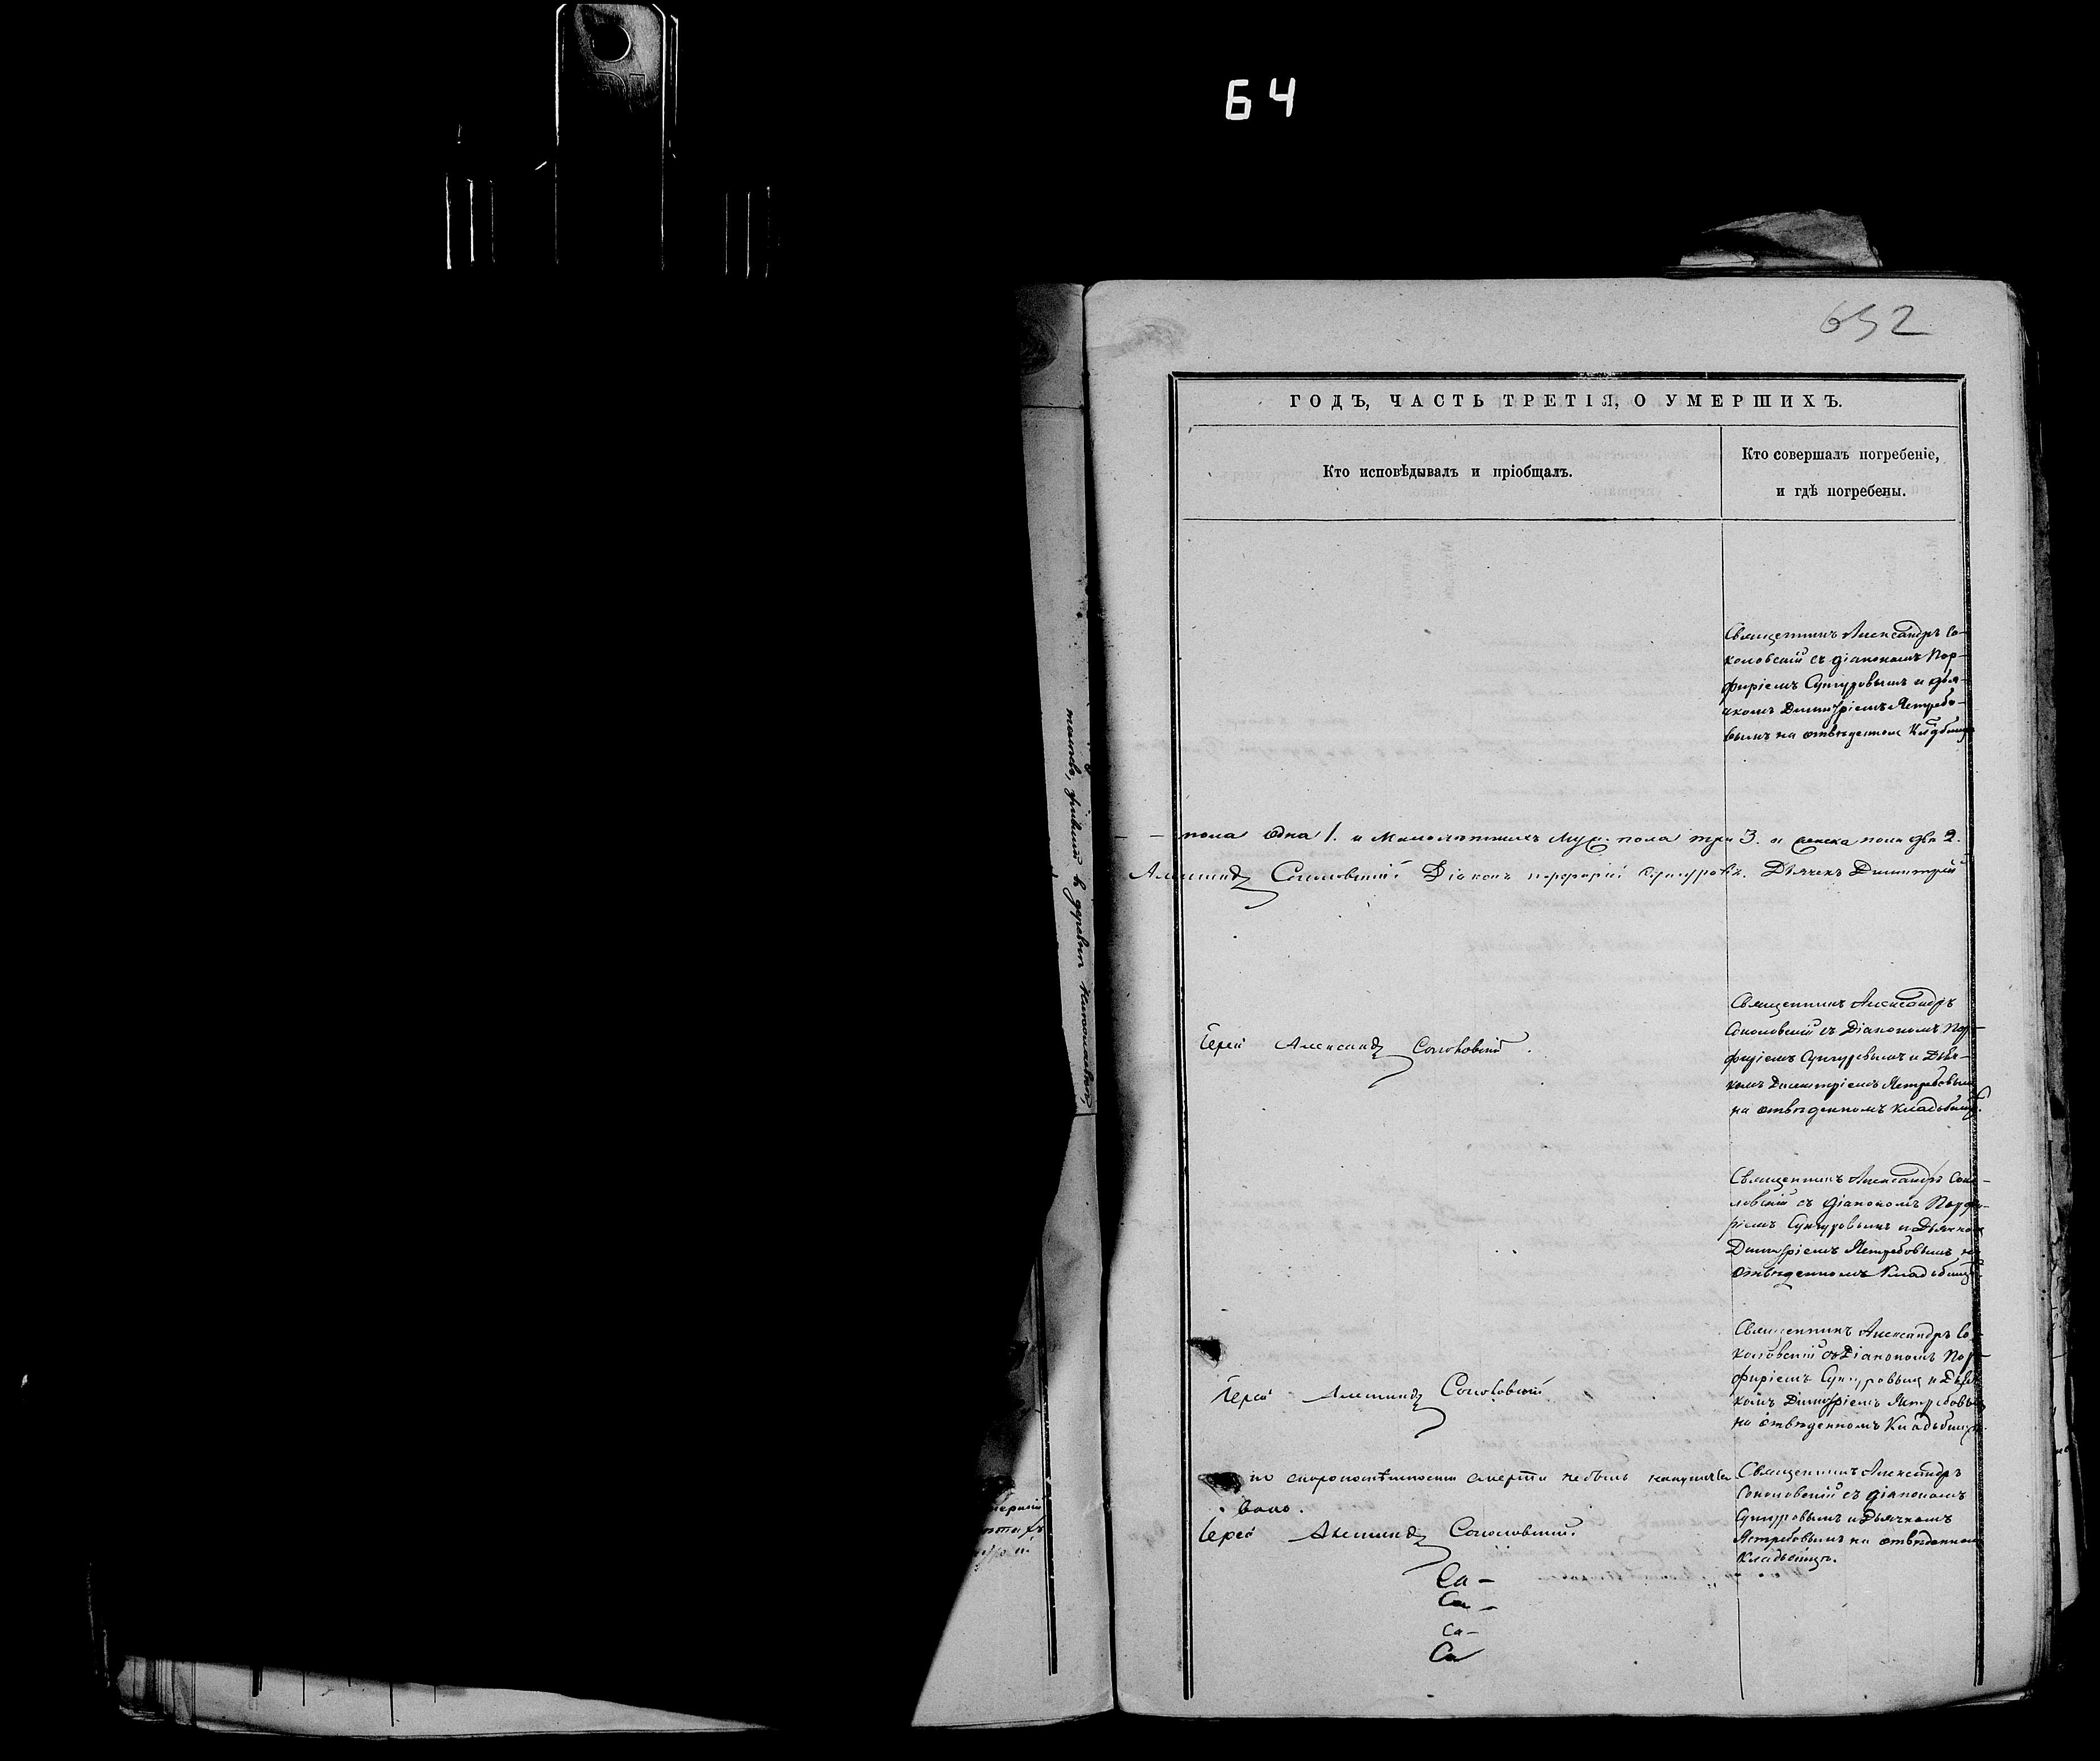 64
652
ГОДЪ, ЧАСТЬ ТРЕТІЯ, О УМЕРШИХЪ.
Кто исповѣдывалъ и пріобщалъ.
Кто совершалъ погребеніе,
и гдѣ погребены.
Священникъ Александръ Со-
коловскій съ діакономъ Пор-
фиріемъ Сунгуровымъ и дья-
чкомъ Димитріемъ Ястребо-
вымъ на отведенномъ Кладбищѣ
— — пола одна 1. и Малолѣтнихъ Муж. пола три 3. и женска пола две 2.
Александръ Соколовскій Діаконъ порфирій Сунгуровъ. Дьячекъ Димитрій
Іерей Александръ Соколовскій.
Священникъ Александръ
Соколовскій съ Діакономъ Пор-
фиріемъ Сунгуровымъ и Дьяч-
комъ Димитріемъ Ястребовымъ
на отведенномъ кладбищѣ.
Священникъ Александръ Соко-
ловскій съ діакономъ Порфи-
ріемъ Сунгуровымъ и Дьячком
Димитріемъ Ястребовымъ на
Отведенномъ Кладьбищѣ
Священникъ Александръ Со-
коловскій съ Діакономъ Пор-
фиріемъ Сунгуровым и Дьяч-
комъ Димитріемъ Ястребовым
на отведенномъ Кладьбищѣ.
Іерей Александръ Соколовскій
по скоропостижности смерти небылъ напутств
вано.
Іерей Александръ Соколовскій.
Священникъ Александръ
Соколовскій съ діакономъ
Сунгуровымъ и Дьячкомъ
Ястребовымъ на отведенном
кладбищѣ.
Са-
Са-
Са-
Са
въ деревни